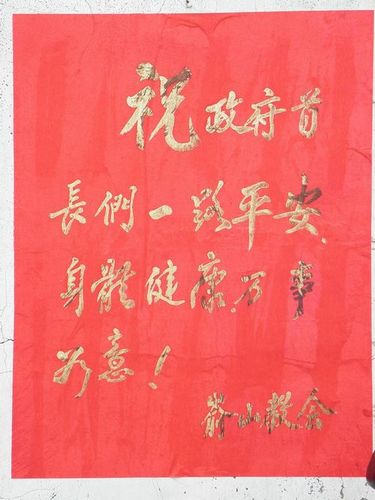 祝政府首
長們一路平安、
身體健康、万事
如意!
山教会